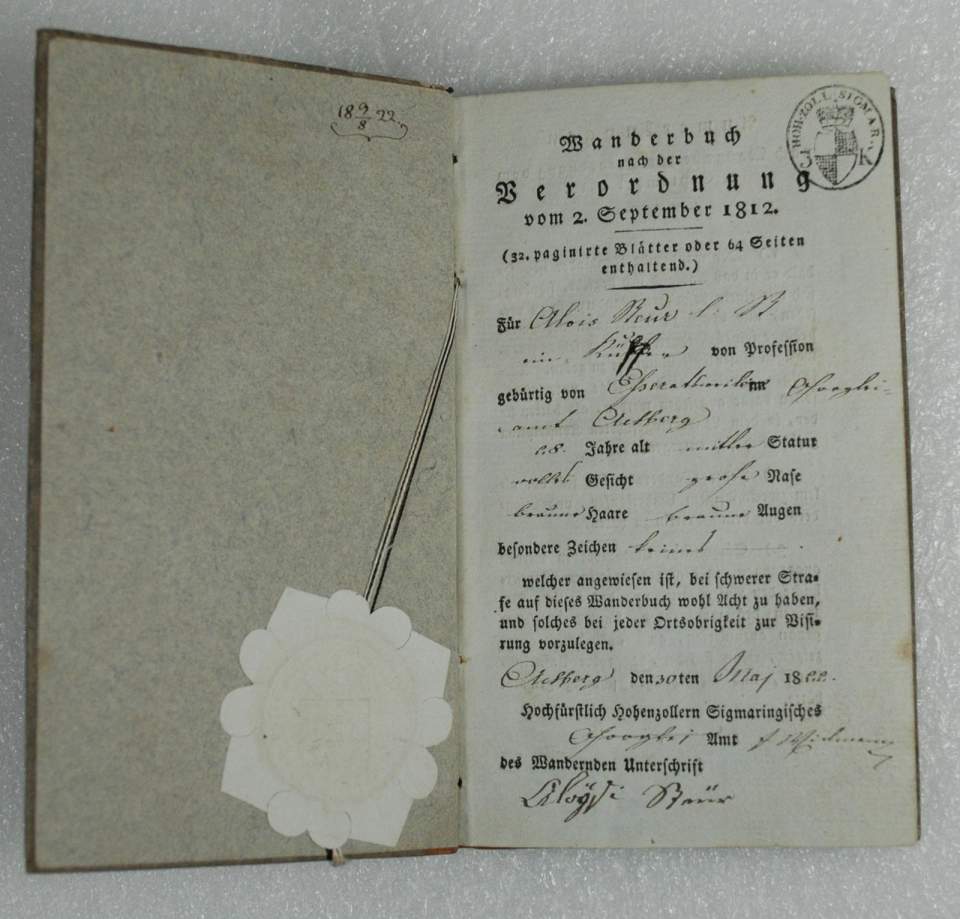 18 9/8 22.
HOH. ZOLL. SIGMAR.
3 K
Wanderbuch
nach der
Verordnung
vom 2. September 1812.
(32. paginirte Blätter oder 64 Seiten
enthaltend.)
Für Alois
ein von Profession
gebürtig von im
amt Achberg
28. Jahre alt mittler Statur
volles Gesicht große Nase
braune Haare braune Augen
besondere Zeichen keines
welcher angewiesen ist, bei schwerer Stra-
fe auf dieses Wanderbuch wohl Acht zu haben,
und solches bei jeder Ortsobrigkeit zur Visi-
rung vorzulegen.
Achberg den 30ten Maj 1822.
Hochfürstlich Hohenzollern Sigmaringisches
Amt
des Wandernden Unterschrift